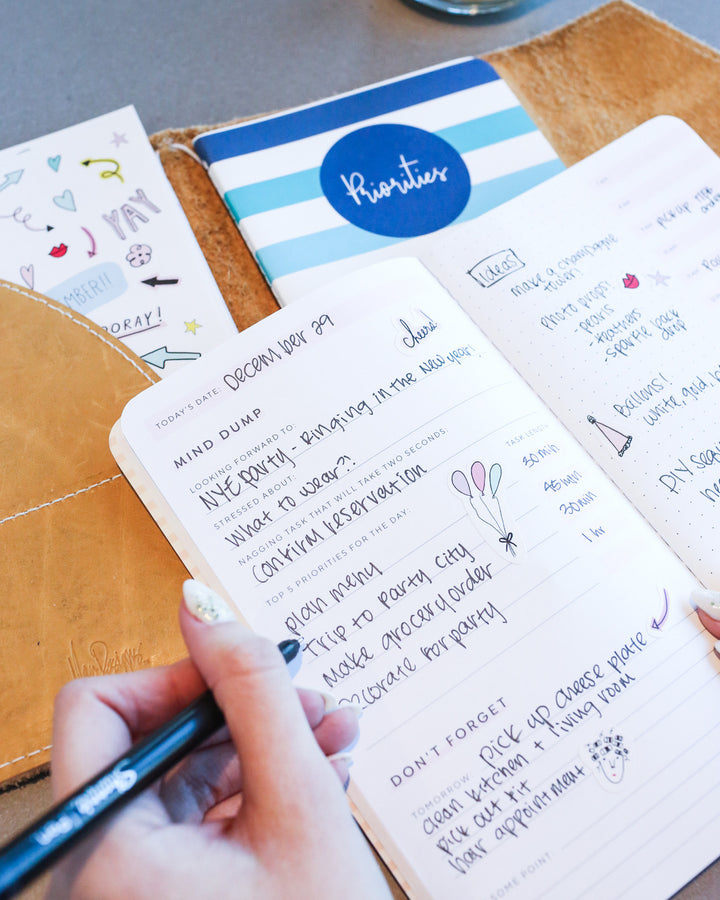 Priorities
YAY
MBER!!
OORAY!
TODAY'S DATE: December 29
cheers!
MIND DUMP
LOOKING FORWARD TO:
NYE party - Ringing in the New year!
STRESSED ABOUT:
What to wear?!
NAGGING TASK THAT WILL TAKE TWO SECONDS:
Confirm reservation
TOP 5 PRIORITIES FOR THE DAY:
TASK LENGTH
plan menu 30 min
Trip to party city 45 min
Make grocery order 30 min
Decorate for party 1 hr
DON'T FORGET
TOMORROW pick up cheese plate
clean kitchen + living room
pick out fit
hair appointment
SOME POINT:
ideas
make a champagne
tower!
photo props!
- pearls
- feathers
- sparkle back
drop
Ballons!
white, gold,
DIY
pick up
Sharpie Pen